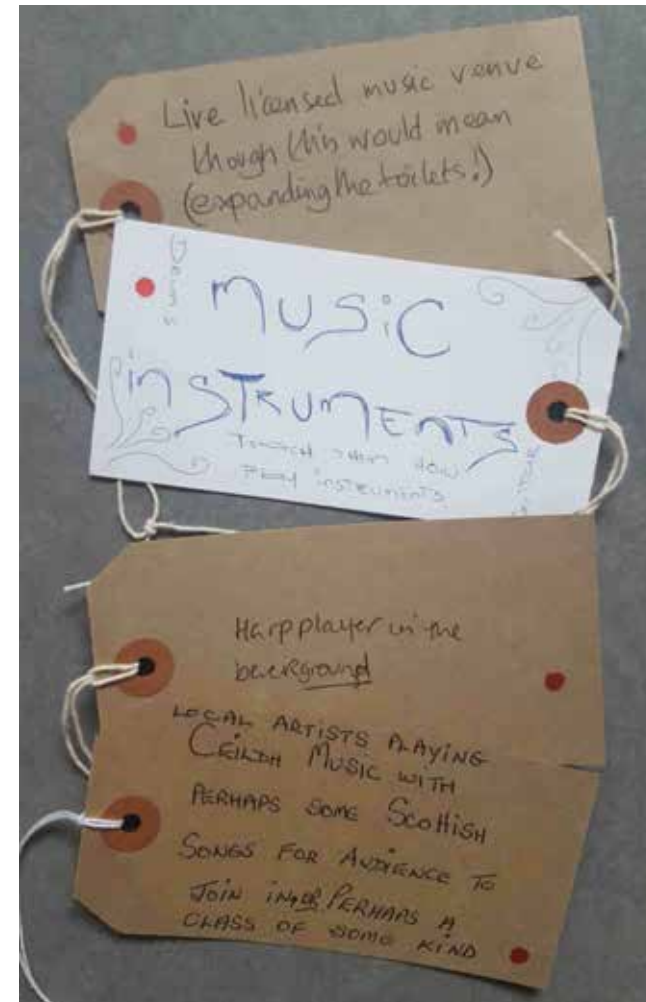 Live licensed music venue
though this would mean
(expanding the toilets!)
Drums
MUSIC
INSTRUMENTS
them how
Play instruments
Harp player in the
background
LOCAL ARTISTS PLAYING
CEILDH MUSIC WITH
PERHAPS SOME SCOttISH
SONGS FOR AUDIENCE TO
JOIN IN, OR PERHAPS A
CLASS OF SOME KIND